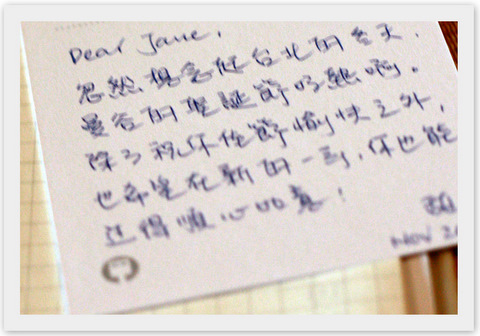 Dear Jane,
忽然想念起台北的冬天.
曼谷的聖誕節好熱啊。
除了祝你佳節愉快之外,
也希望在新的一年,你也能
過得順心如意!
NOV